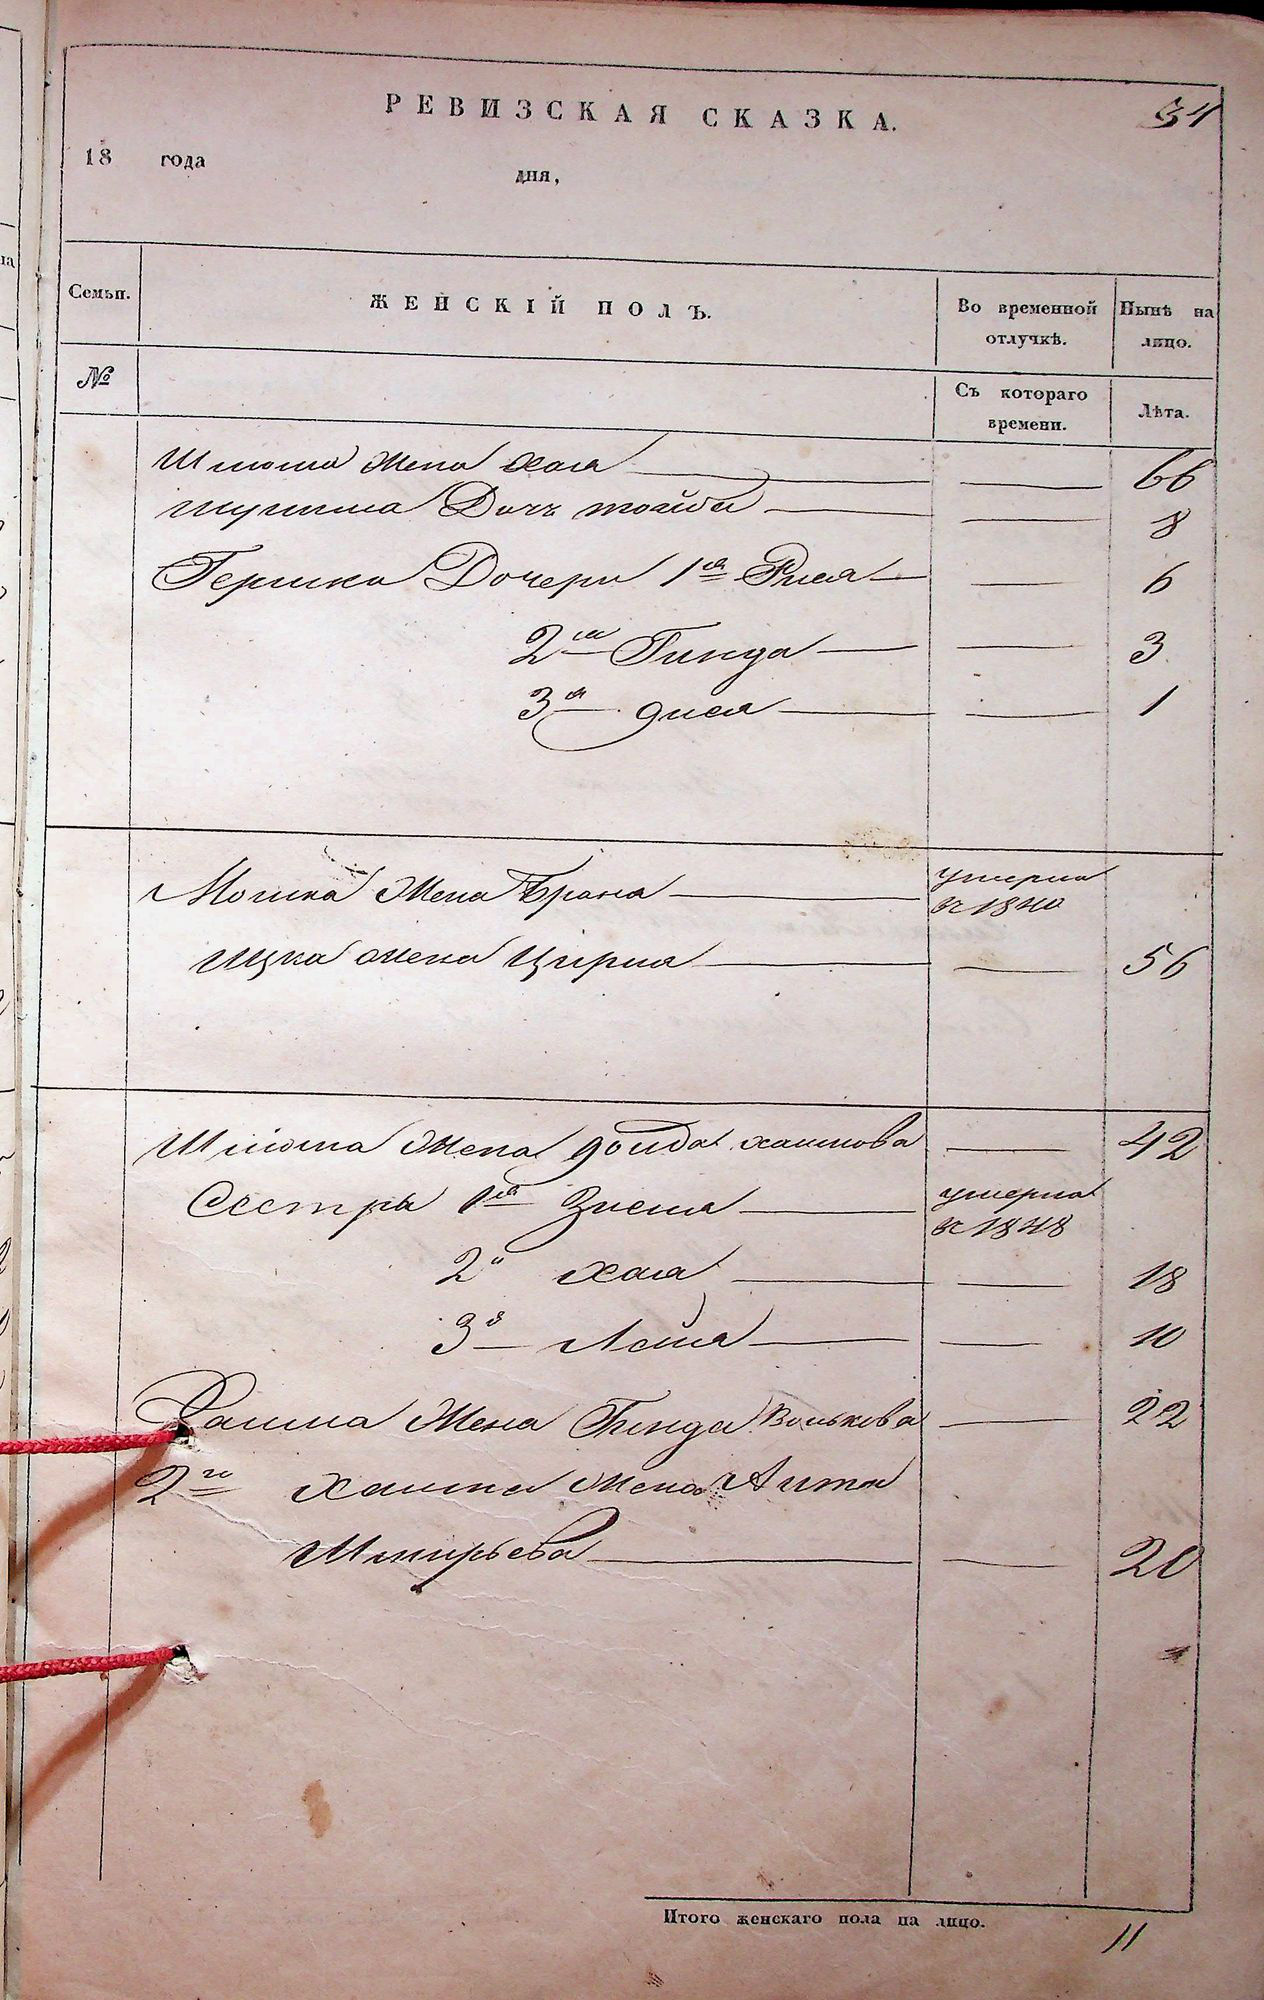 РЕВИЗСКАЯ СКАЗКА.
31
18 года
дня,
Семьи.
ЖЕНСКІЙ ПОЛЪ.
Во временной отлучкѣ.
Нынѣ на лицо.
№
Съ котораго времени.
Лѣта.
Шлиома Жена Хая 66
Дочь тойба 8
Гершка Дочери 1я Рися 6
2я Гинда 3
3я дися 1
Мошка Жена Брана умерла въ 1840
Ицка жена Цирля 56
Шлиома Жена доиба хаимова 42
Сестры 1я Зисля умерла въ 1848
2я Хая 18
3я Лейя 10
Жена Гинда Волькова 22
2го Хаима Жена Аита
Шмирьева 20
Итого женскаго пола на лицо.
11